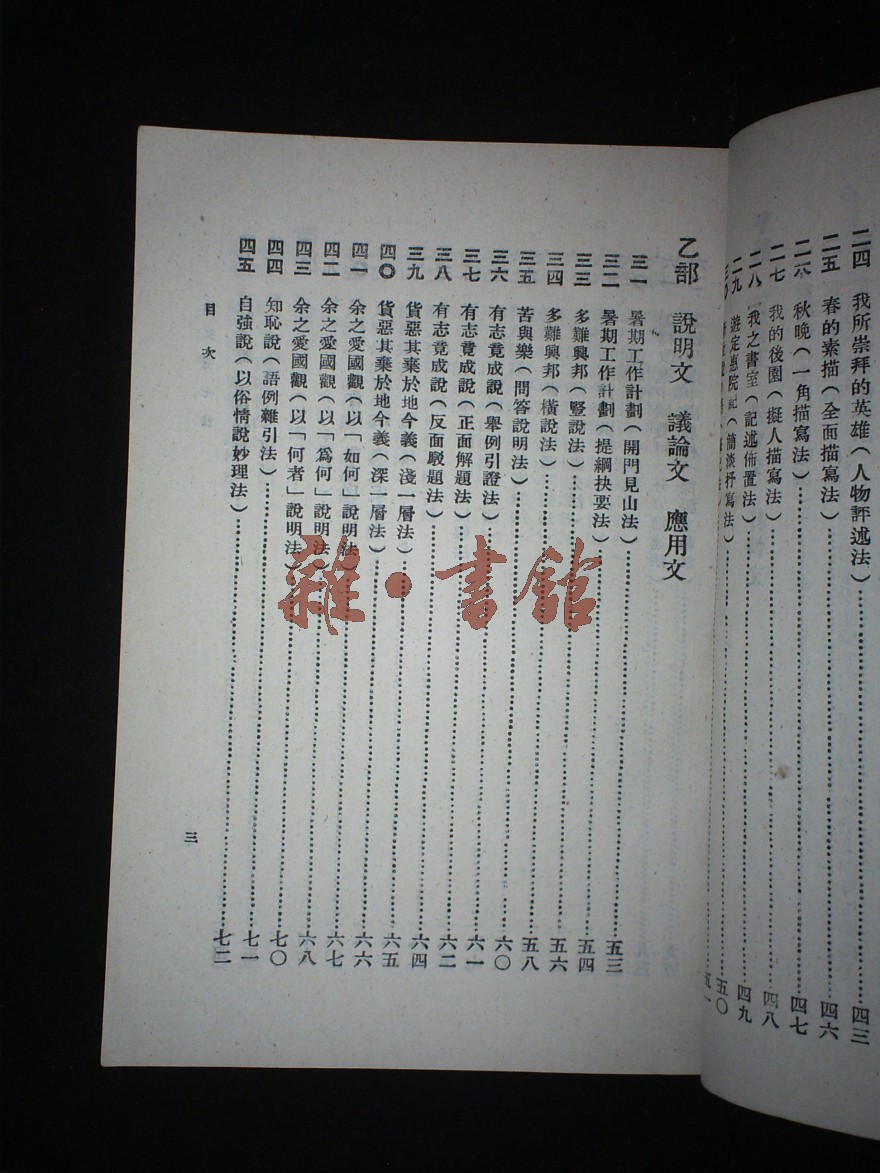 二四 我所崇拜的英雄(人物評述法)……四三
二五 春的素描(全面描寫法)……四六
二六 秋晚(一角描寫法)……四七
二七 我的後園(擬人描寫法)……四八
二八 我之書室(記述佈置法)……四九
二九 遊定惠院記(簡淡抒寫法)……五〇
三〇
乙部 說明文 議論文 應用文
三一 暑期工作計劃(開門見山法)……五三
三二 暑期工作計劃(提綱抉要法)……五四
三三 多難興邦(豎說法)……五六
三四 多難興邦(橫說法)……五八
三五 苦與樂(問答說明法)……六〇
三六 有志竟成說(舉例引證法)……六一
三七 有志竟成說(正面解題法)……六二
三八 有志竟成說(反面駁題法)……六四
三九 貨惡其棄於地今義(淺一層法)……六五
四〇 貨惡其棄於地今義(深一層法)……六六
四一 余之愛國觀(以「如何」說明法)……六七
四二 余之愛國觀(以「爲何」說明法)……六八
四三 余之愛國觀(以「何者」說明法)……七〇
四四 知恥說(語例雜引法)……七一
四五 自強說(以俗情說妙理法)……七二
目次
三
雜·書館